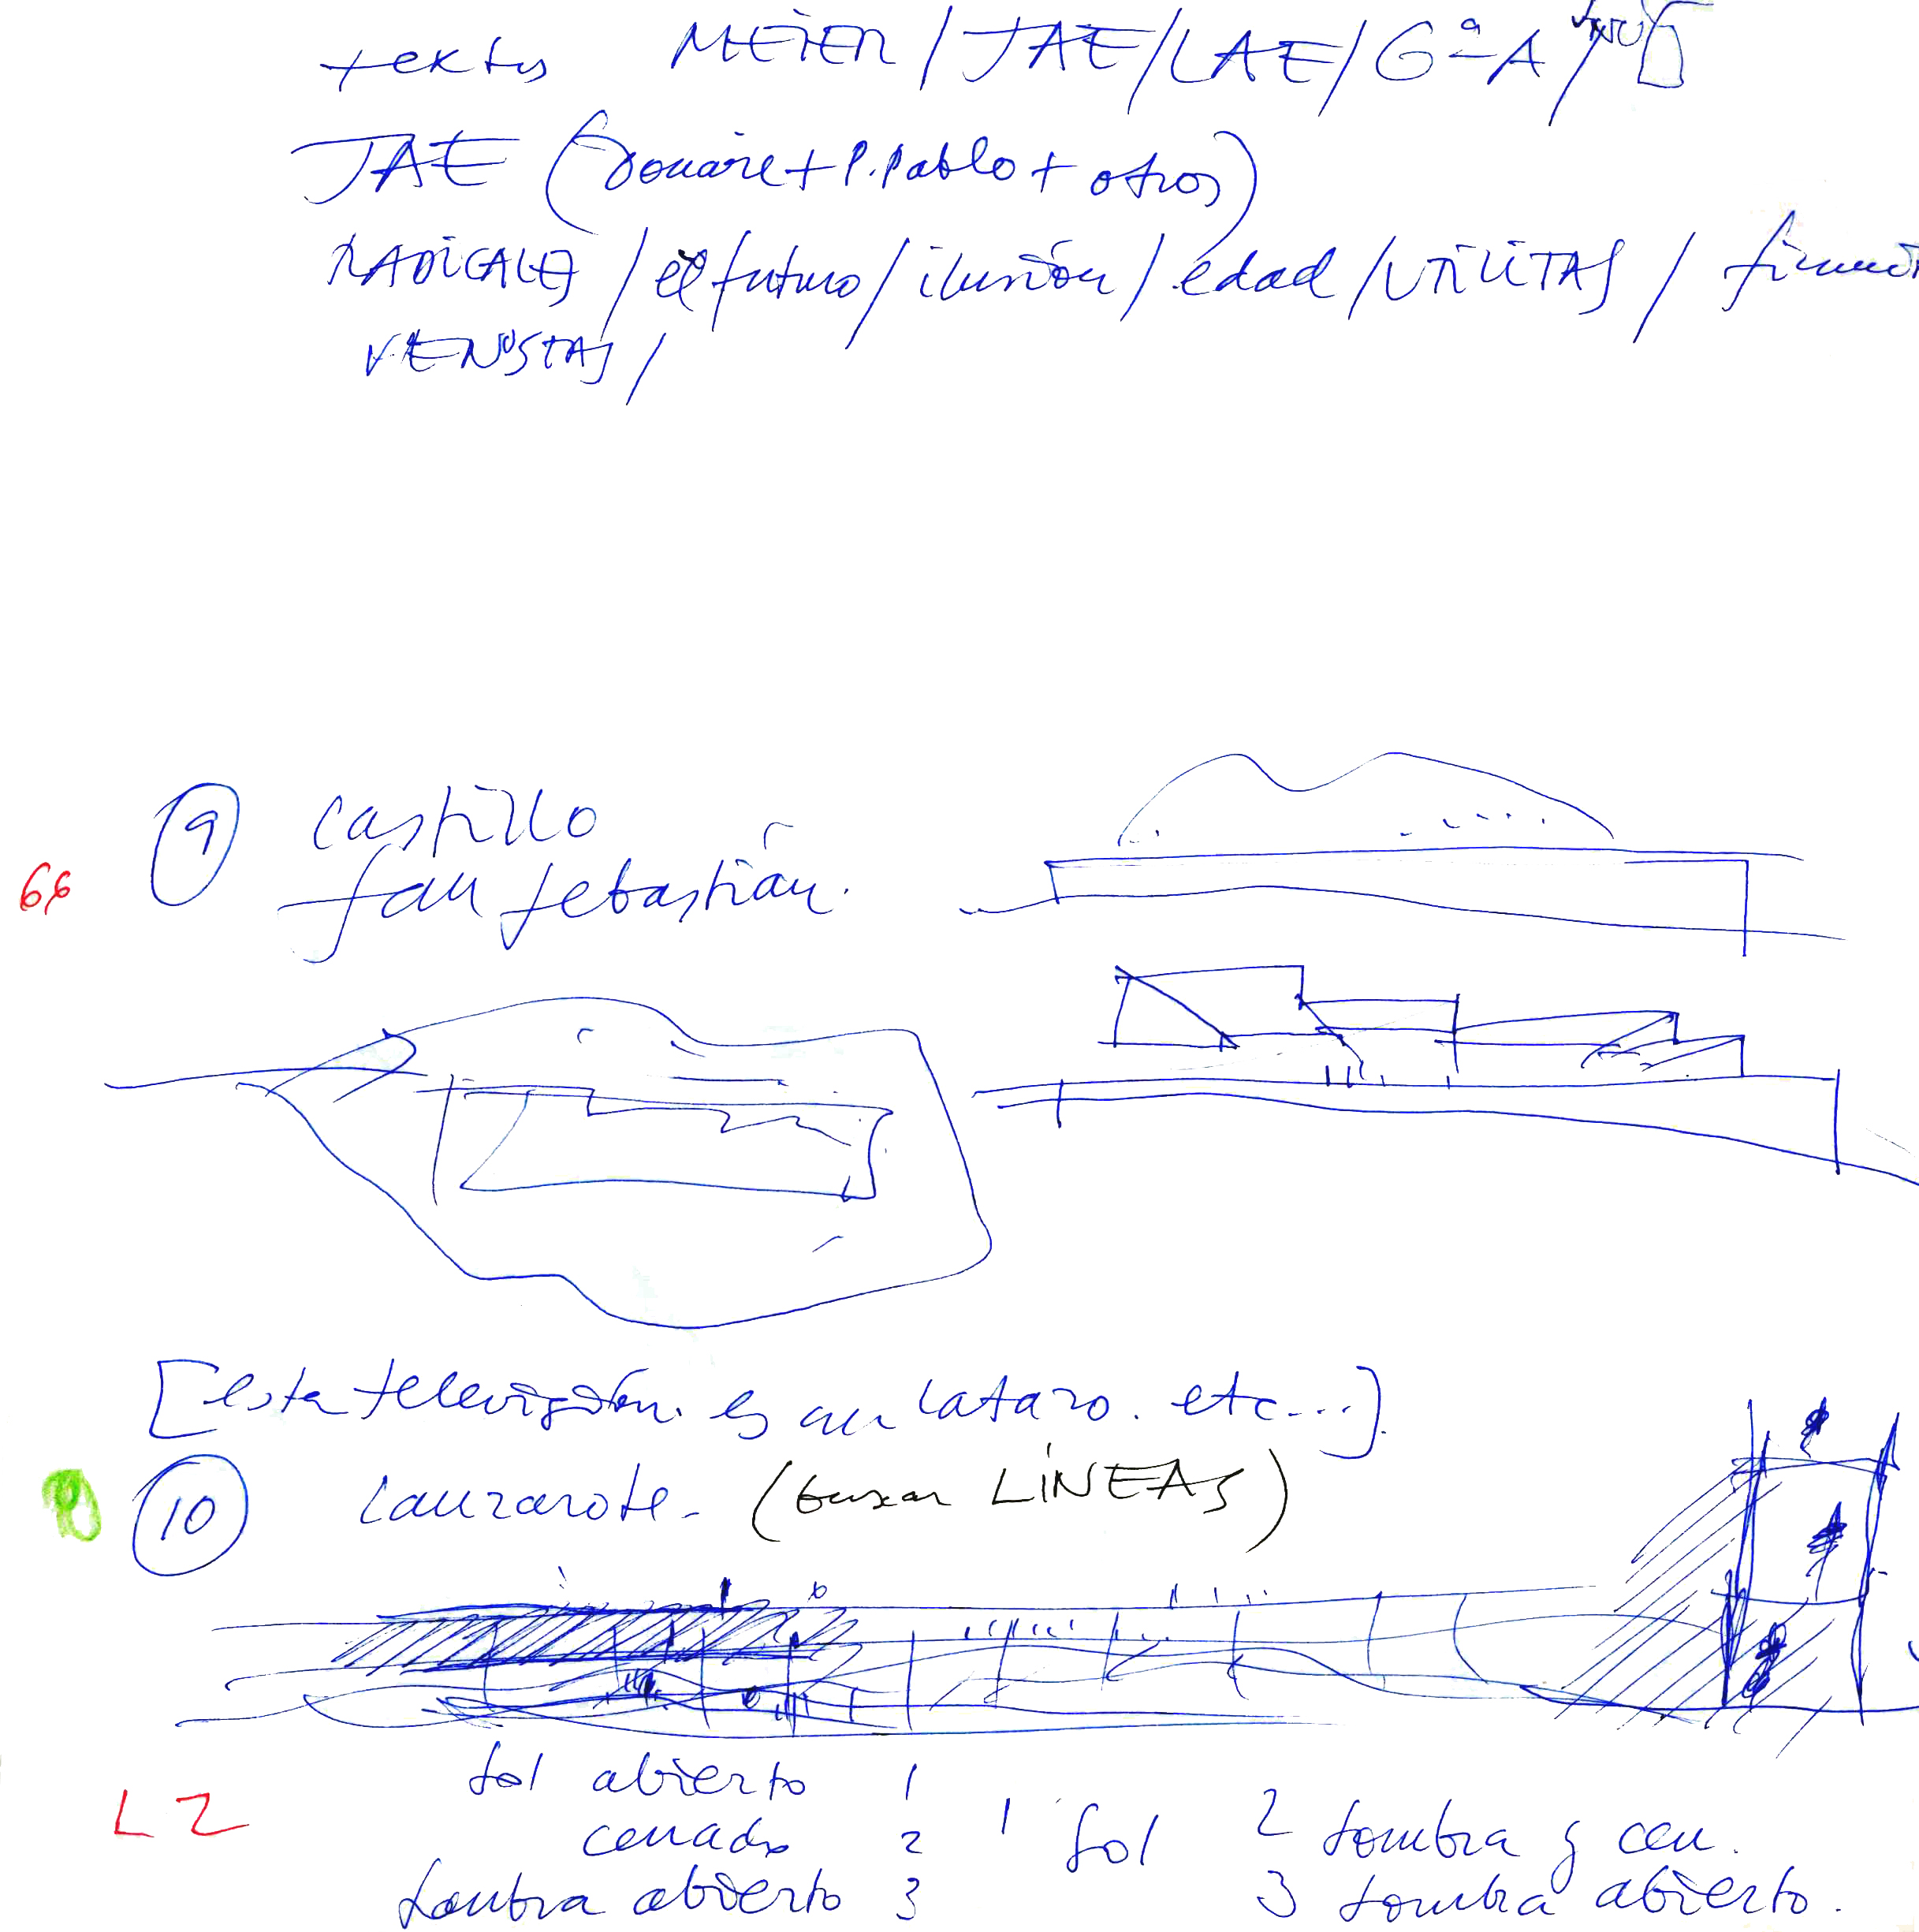 textos MEIER / JAE / LAE / GªA /
JAE ( + P. Pablo + otros)
RADICALES / el futuro / ilusión / edad / UTILITAS /
VENUSTAS /
9 Castillo
66 San Sebastián.
[esta televisión. es un latazo. etc...].
10 Lanzarote. (buscar LÍNEAS)
Sol abierto 1
LZ cerrado 2 1 Sol 2 Sombra y cerr.
Sombra abierto 3 3 Sombra abierto.